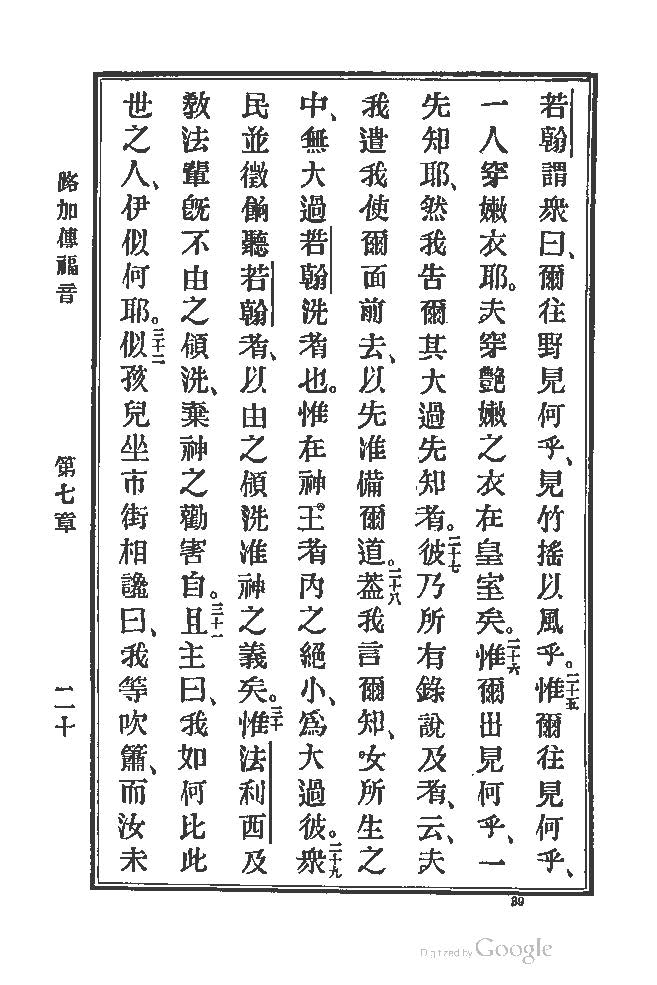 若翰謂衆曰、爾往野見何乎、見竹搖以風乎。二十五惟爾往見何乎、
一人穿嫩衣耶。夫穿艷嫩之衣在皇室矣。二十六惟爾出見何乎、一
先知耶、然我告爾其大過先知者。二十七彼乃所有錄說及者、云、夫
我遣我使爾面前去、以先准備爾道。二十八葢我言爾知、女所生之
中、無大過若翰洗者也。惟在神王者內之絕小、爲大過彼。二十九衆
民並徵餉聽若翰者、以由之領洗准神之義矣。三十惟法利西及
敎法輩旣不由之領洗、棄神之勸害自。三十一且主曰、我如何比此
世之人、伊似何耶。三十二似孩兒坐市街相讒曰、我等吹簫、而汝未
路加傳福音 第七章 二十
39
Digitized by Google